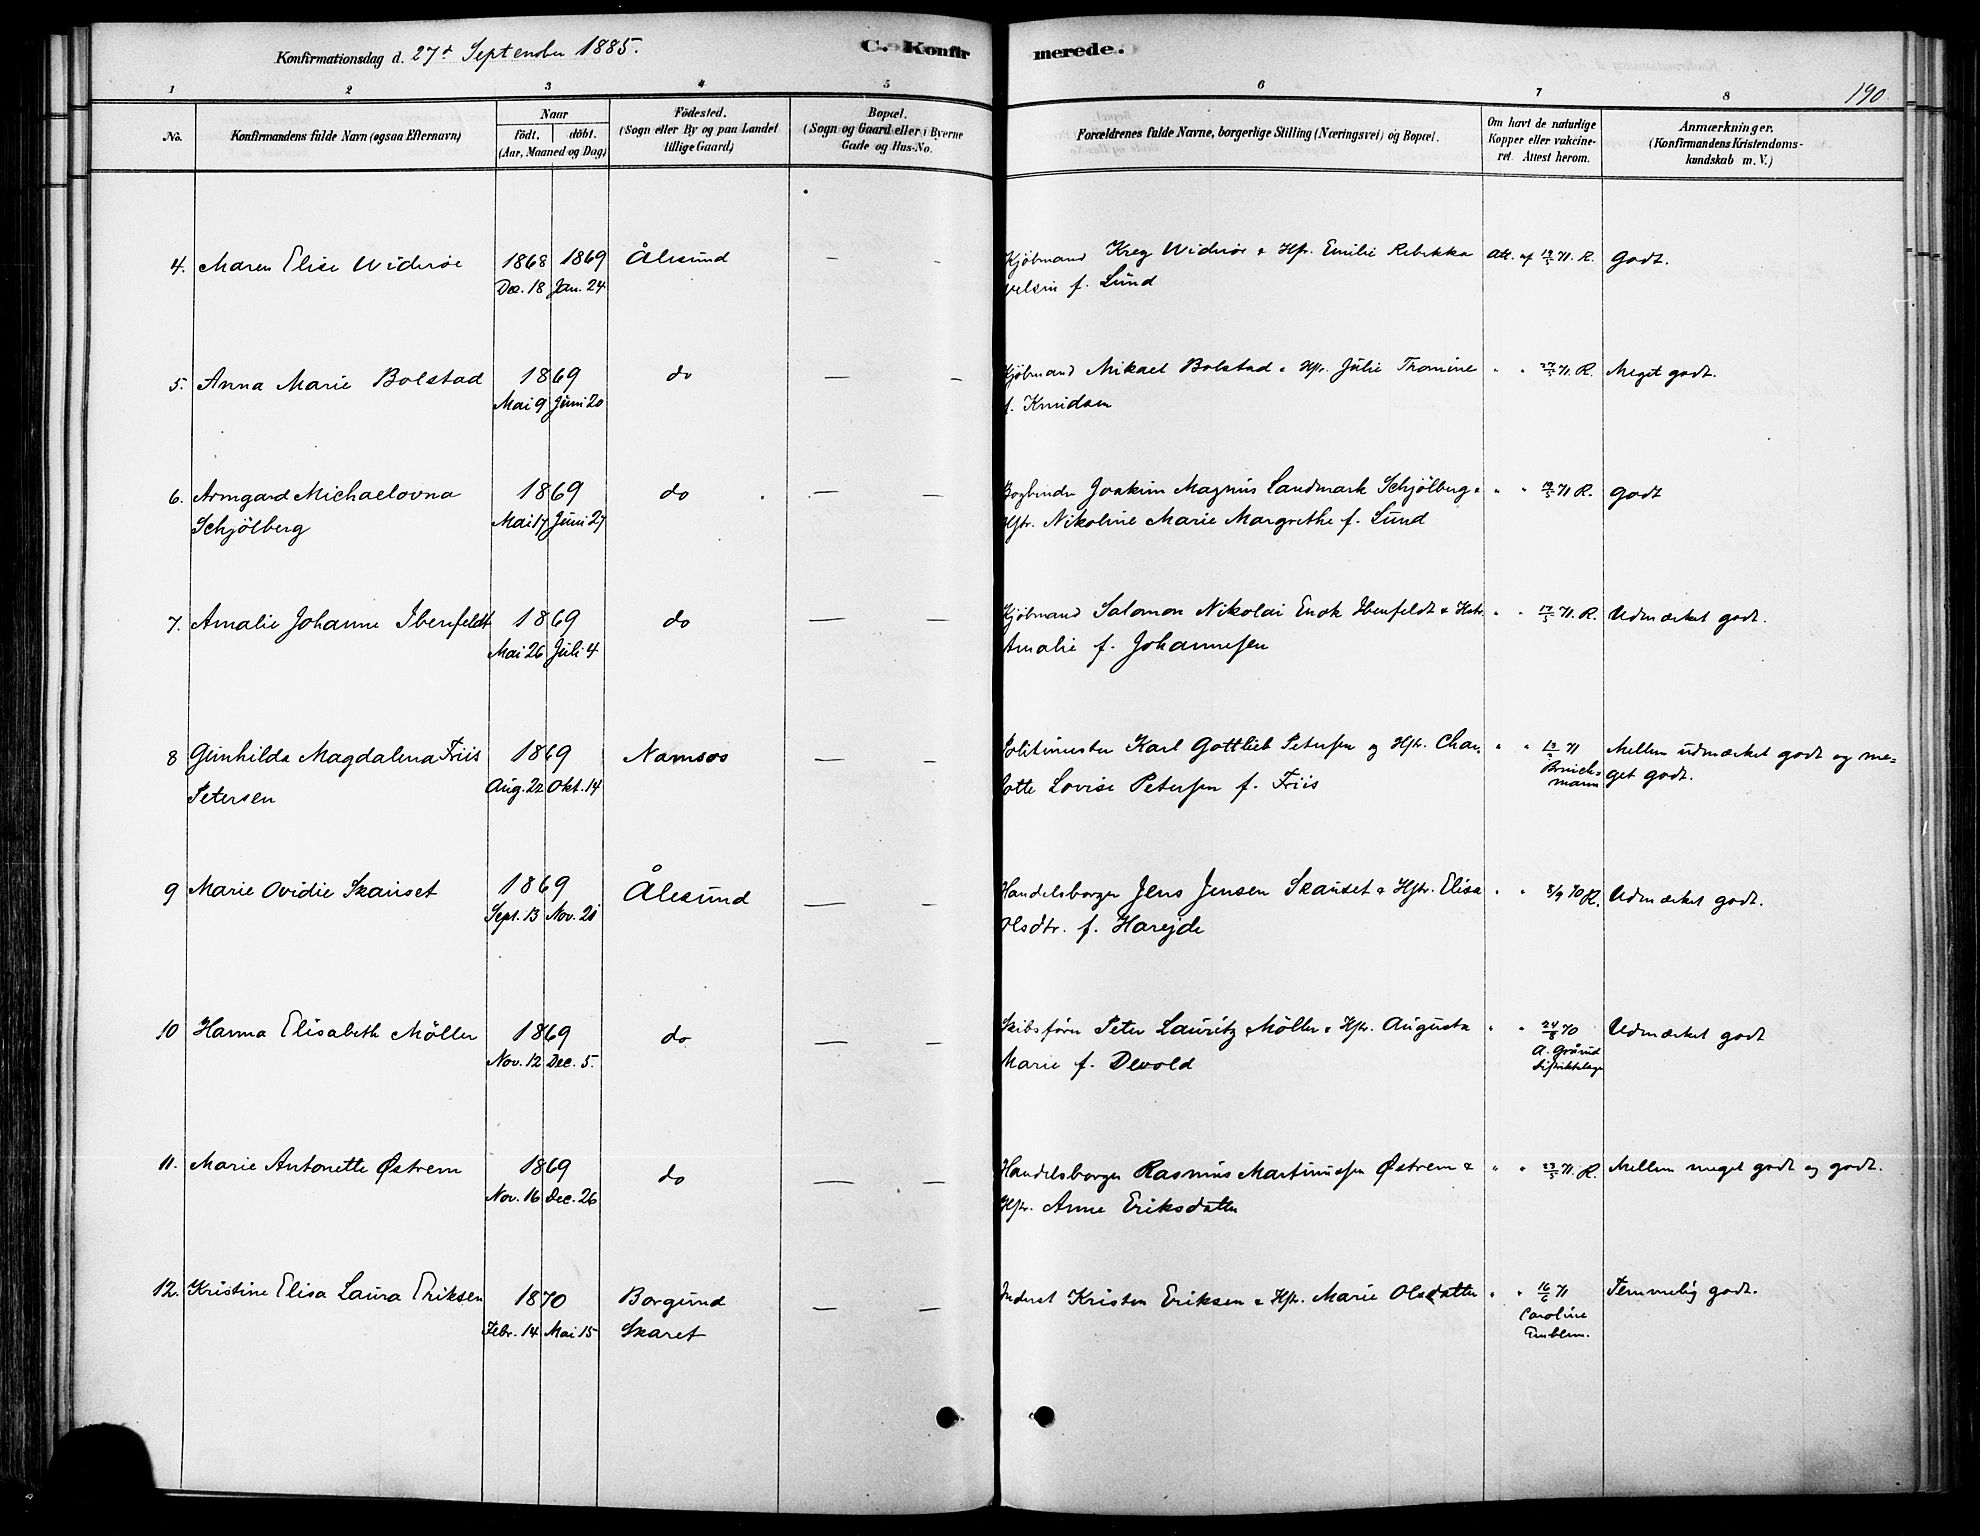 Konfirmationsdag d. 27d September 1885.
C. Konfirmerede.
190
1 2 3 4 5 6 7 8
No. Konfirmandens fulde Navn (ogsaa Efternavn) Naar födt, döbt. (Aar, Maaned og Dag) Födested. (Sogn eller By og paa Landet tillige Gaard) Bopæl. (Sogn og Gaard eller i Byerne Gade og Hus-No. Forældrenes fulde Navne, borgerlige Stilling (Næringsvei) og Bopæl. Om havt de naturlige Kopper eller vakcineret. Attest herom. Anmærkninger. (Konfirmandens Kristendomskundskab m. V.)
4. Maren Elise Widerøe 1868 1869 Ålesund — - Kjöbmand Kreg Widerøe & Hstr. Emilie Rebekka Att. af 19/5 71. R. Godt.
Dec. 18 Jan. 24 f. Lund
5. Anna Marie Bolstad 1869 do — - Kjöbmand Mikael Bolstad & Hstr. Julie Thomine " " 27/5 71. R. Meget godt.
Mai 9 Juni 20 f. Knudsen
6. Armgard Michaelovna 1869 do — - Bogbinder Joakim Magnus Landmark Schjölberg & " " 19/5 71 R. Godt
Schjölberg Mai 17 Juni 27 Hstr. Nikoline Marie Margrethe f. Lund
7. Amalie Johanne Ibenfeldt 1869 do — - Kjöbmand Salomon Nikolai Enok Ibenfeldt & Hstr. " " 17/5 71. R. Udmærket godt.
Mai 26 Juli 4 Amalie f. Johannesen
8 Gunhilda Magdalena Friis 1869 Namsos — - Politimester Karl Gottlieb Petersen og Hstr. Char- " " 71 Mellem udmærket godt og me-
Petersen Aug. 22 Okt. 14 lotte Lovise Petersen f. Friis get godt.
9 Marie Ovidie Skauset 1869 Ålesund — - Handelsborger Jens Jensen Skauset & Hstr. Elisa " " 8/9 70 R. Udmærket godt.
Sept. 13 Nov. 21 Olsdtr. f. Hareide
10 Hanna Elisabeth Möller 1869 do — - Skibsförer Peter Lauritz Möller & Hstr. Augusta " " 24/8 70 Udmærket godt
Nov. 12 Dec. 5. Marie f. Devold A. Grårud Distriktslæge
11. Marie Antonette Østrem 1869 do — - Handelsborger Rasmus Martinussen Østrem & " " 23/5 71. R. Mellem meget godt og godt.
Nov. 16 Dec. 26 Hstr. Anne Eriksdatter
12. Kristine Elisa Laura Eriksen 1870 Borgund — - Inderst Kristen Eriksen & Hstr. Marie Olsdatter " " 16/6 71 Temmelig godt.
Febr. 14 Mai 15 Skaret Caroline Emblem.